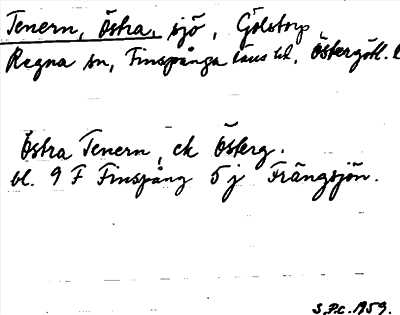 Tenern, Östra, sjö, Gölstorp
Regna sn, Finspånga läns hd, Östergötl. l
Östra Tenern, ek Österg.
bl. 9 F Finspång 5 j Frängsjön.
S.P.C. 1959.